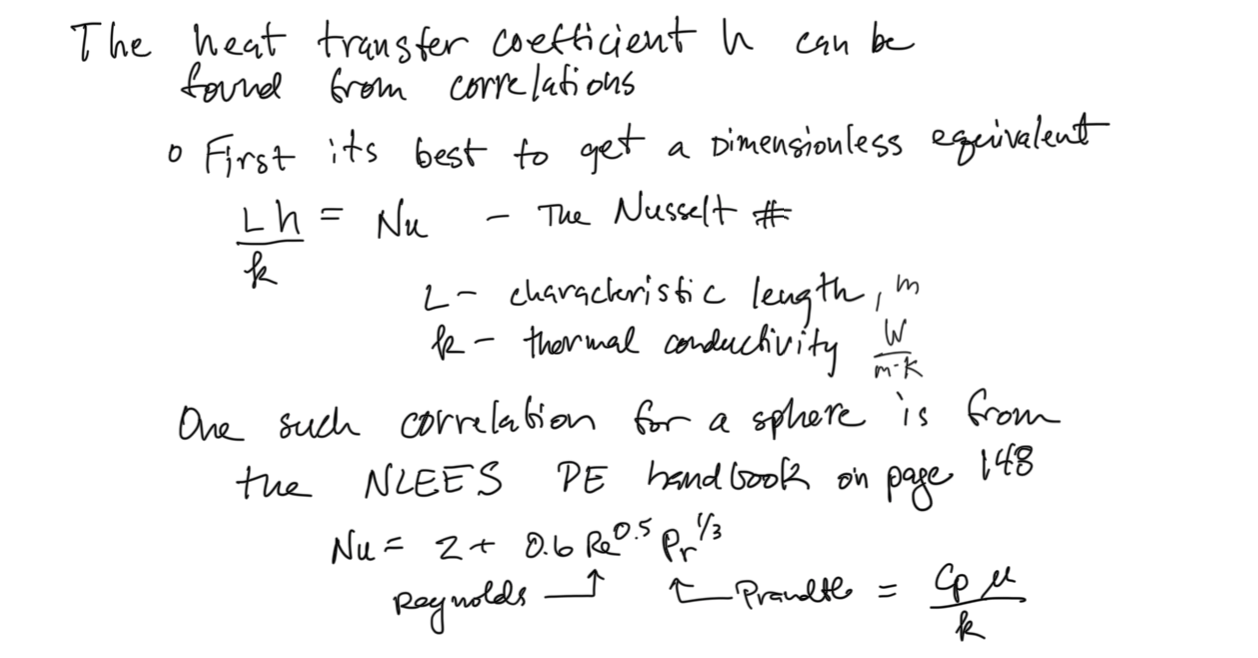 The heat transfer coefficient h can be
found from correlations
o First its best to get a Dimensionless equivalent
Lh/k = Nu - The Nusselt #
L - characteristic length, m
k - thermal conductivity W/m·K
One such correlation for a sphere is from
the NLEES PE handbook on page 148
Nu = 2 + 0.6 Re^0.5 Pr^1/3
Reynolds ↑ ↑ Prandtl = Cp μ/k